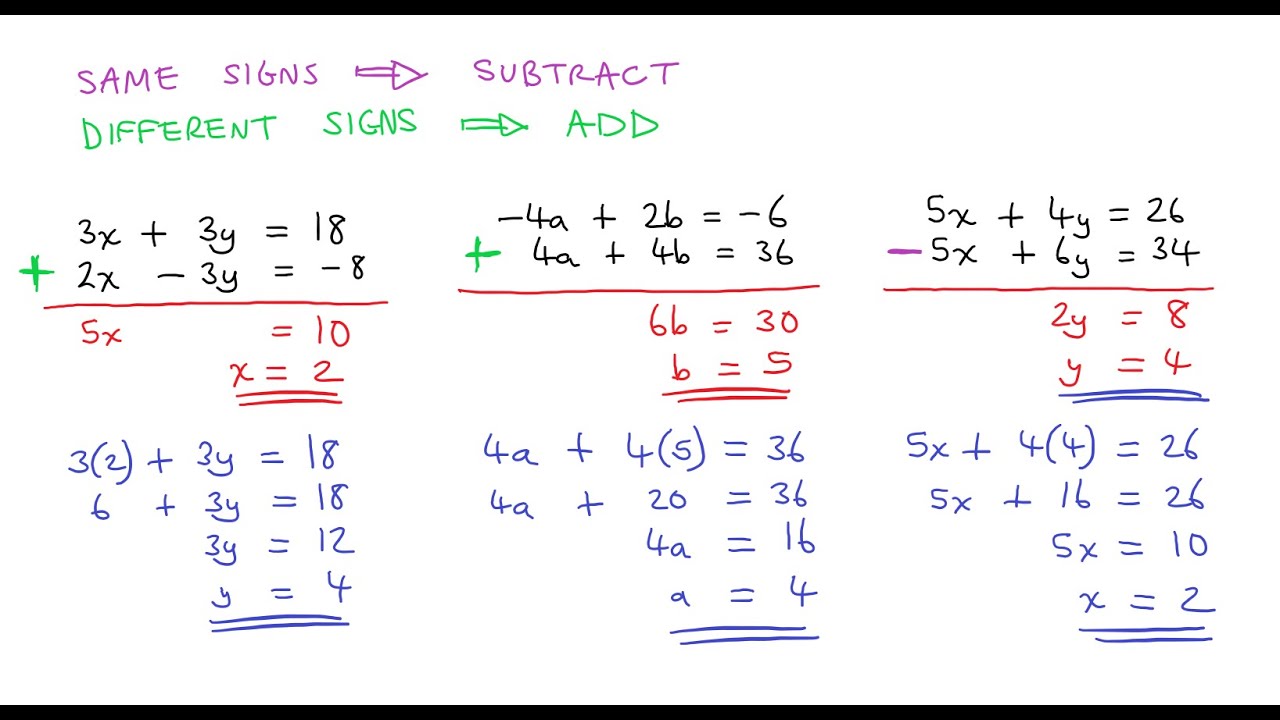 SAME SIGNS ⇒ SUBTRACT
DIFFERENT SIGNS ⇒ ADD
3x + 3y = 18
+ 2x - 3y = -8
5x = 10
x = 2
3(2) + 3y = 18
6 + 3y = 18
3y = 12
y = 4
-4a + 2b = -6
+ 4a + 4b = 36
6b = 30
b = 5
4a + 4(5) = 36
4a + 20 = 36
4a = 16
a = 4
5x + 4y = 26
- 5x + 6y = 34
2y = 8
y = 4
5x + 4(4) = 26
5x + 16 = 26
5x = 10
x = 2